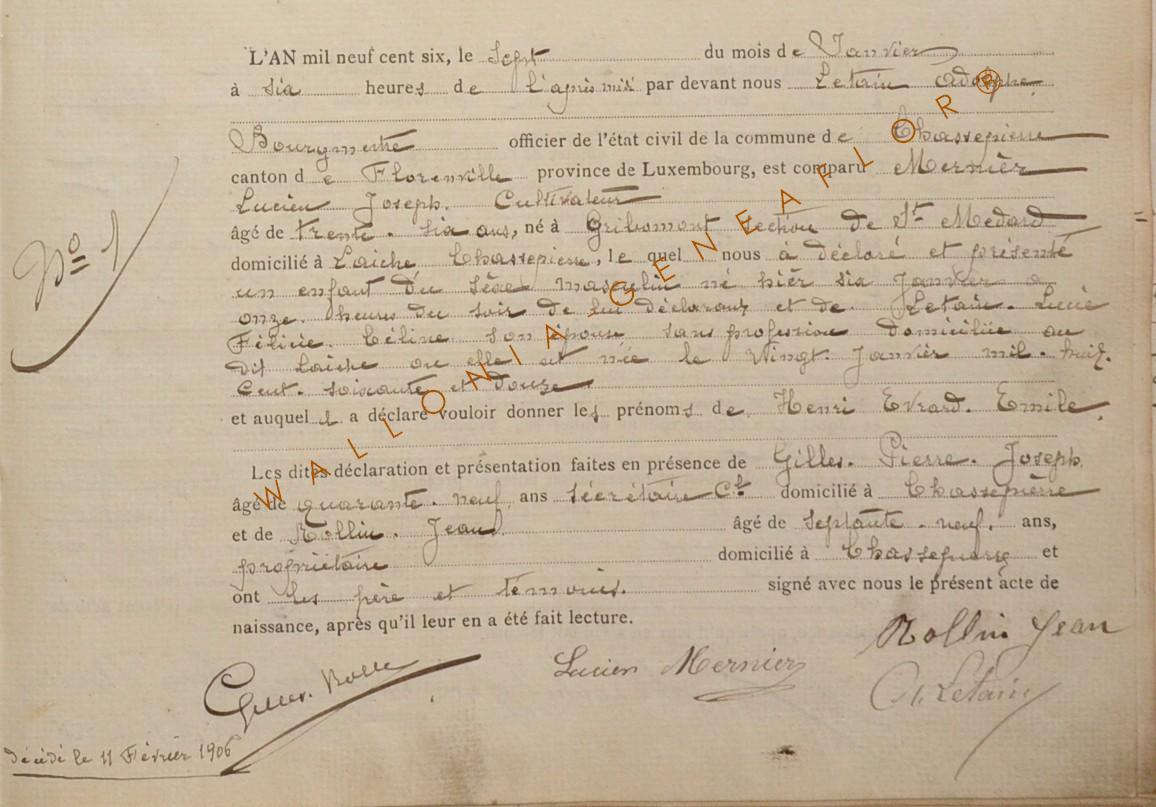 N° 1
L'AN mil neuf cent six, le Sept du mois de Janvier
à six heures de l'après midi par devant nous Letain Adolphe
Bourgmestre officier de l'état civil de la commune de Chassepierre
canton de Florenville province de Luxembourg, est comparu Mernier
Lucien Joseph. Cultivateur
âgé de trente. six ans, né à Gribomont section de St Medard
domicilié à Laiche Chassepierre, lequel nous à déclaré et présenté
un enfant du sèxe masculin né hièr six Janvier a
onze. heures du soir de lui déclarant et de Letain. Lucie
Félicie. Céline son épouse sans profession domiciliée au
dit Laiche ou elle est née le Vingt. Janvièr mil. huit.
Cent. soixante et douze.
et auquel il a déclaré vouloir donner les prénoms de Henri Evrard. Emile.
Les dites déclaration et présentation faites en présence de Gilles. Pierre. Joseph
âgé de quarante. neuf ans sécrétaire Cl domicilié à Chassepièrre
et de Rollin. Jean âgé de septante. neuf. ans,
propriètaire domicilié à Chassepierre et
ont les père et témoins. signé avec nous le présent acte de
naissance, après qu'il leur en a été fait lecture.
Rollin Jean
Lucien Mernier
Gilles.
Letain
décédé le 11 Février 1906
WALLONIA GENEAFLOR ®